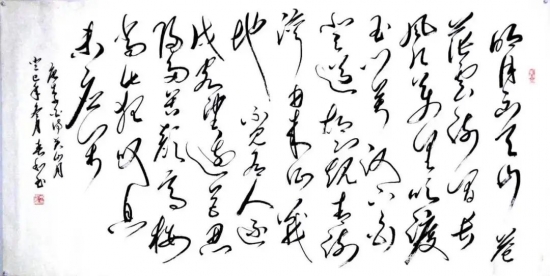 明月出天山 苍
茫云海间长
风几万里吹度
玉门关汉下白
登道胡窥青海
湾由来征战
地 不见有人还
戍客望边邑思
归多苦颜高楼
当此夜叹息
未应闲
唐李白诗关山月
癸巳年 月 书